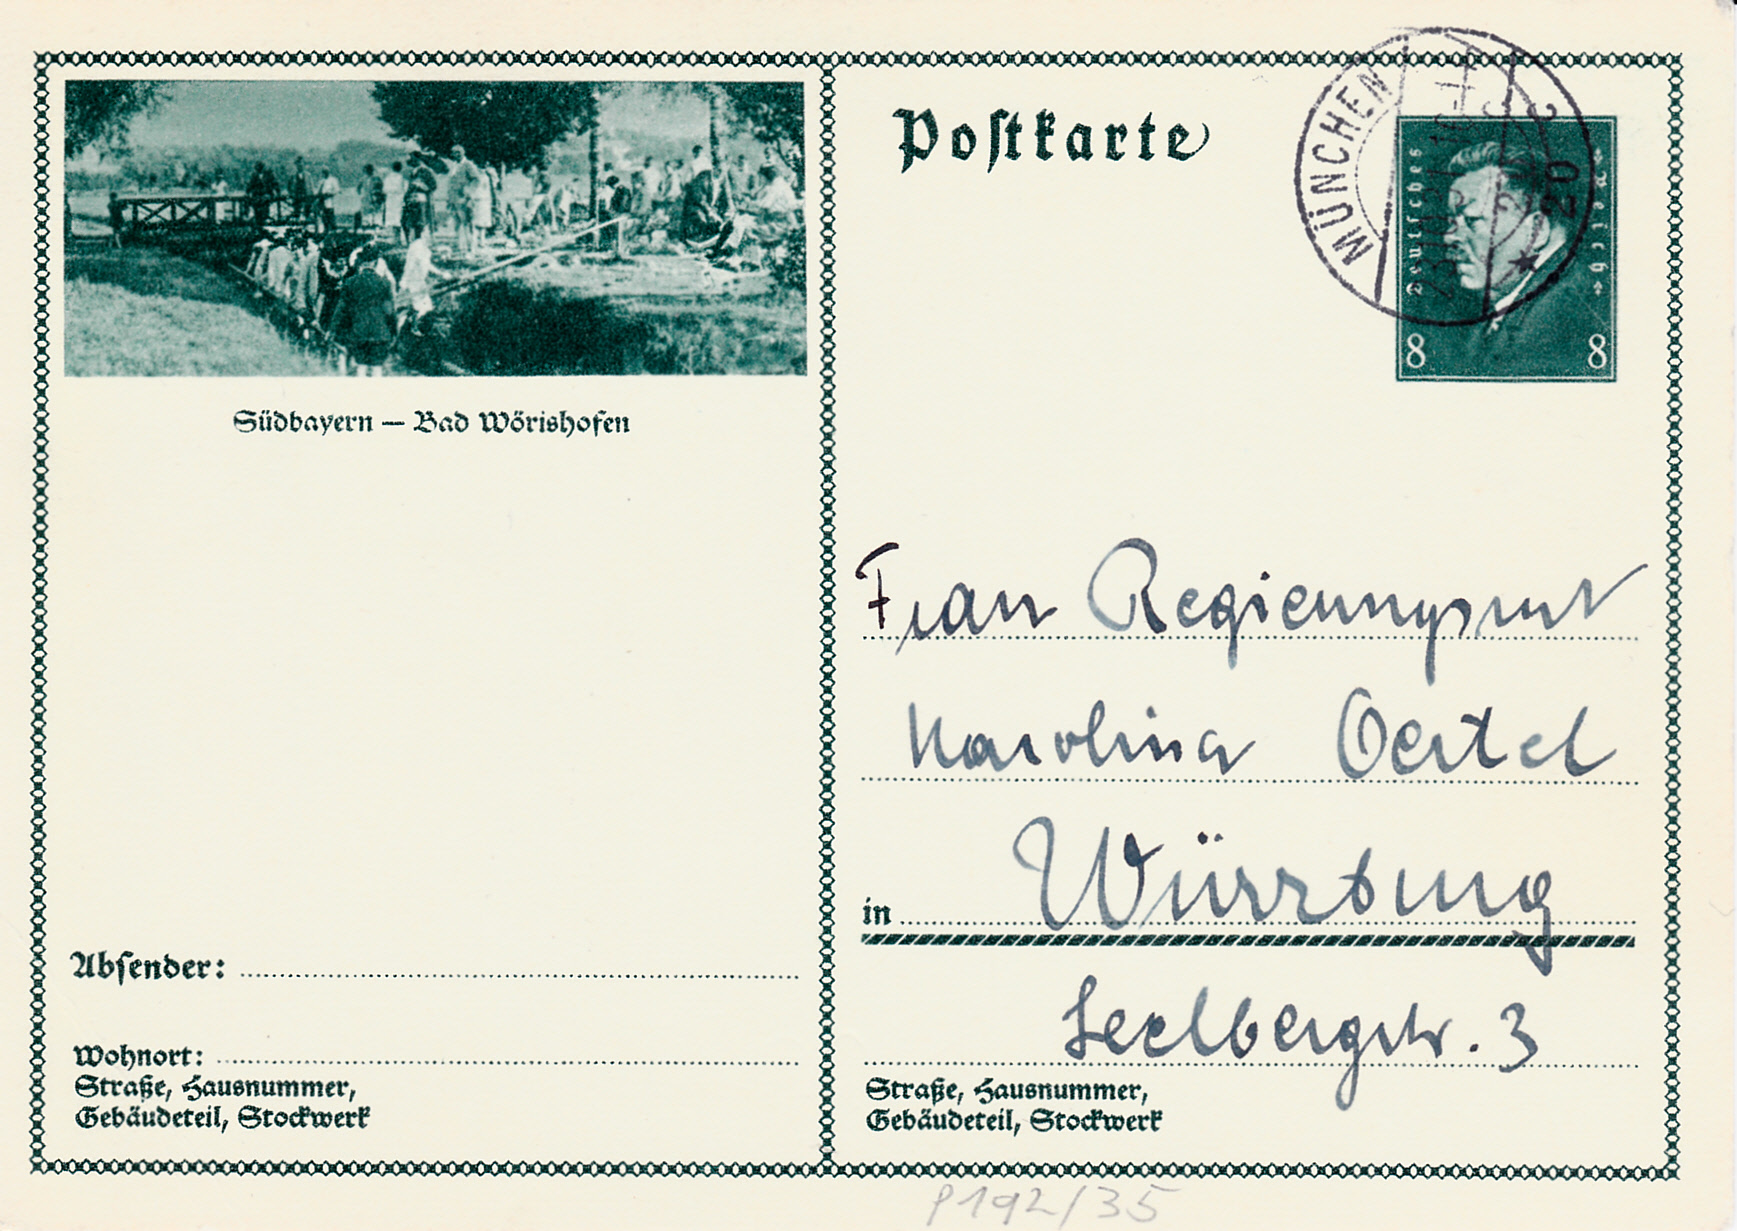 Postkarte
MÜNCHEN
20
Deutsches
Reich
8 8
Südbayern — Bad Wörishofen
Frau Regierungsrat
Karolina Oertel
in Würzburg
Seelbergstr. 3
Absender:
Wohnort:
Straße, Hausnummer,
Gebäudeteil, Stockwerk
Straße, Hausnummer,
Gebäudeteil, Stockwerk
P192/35